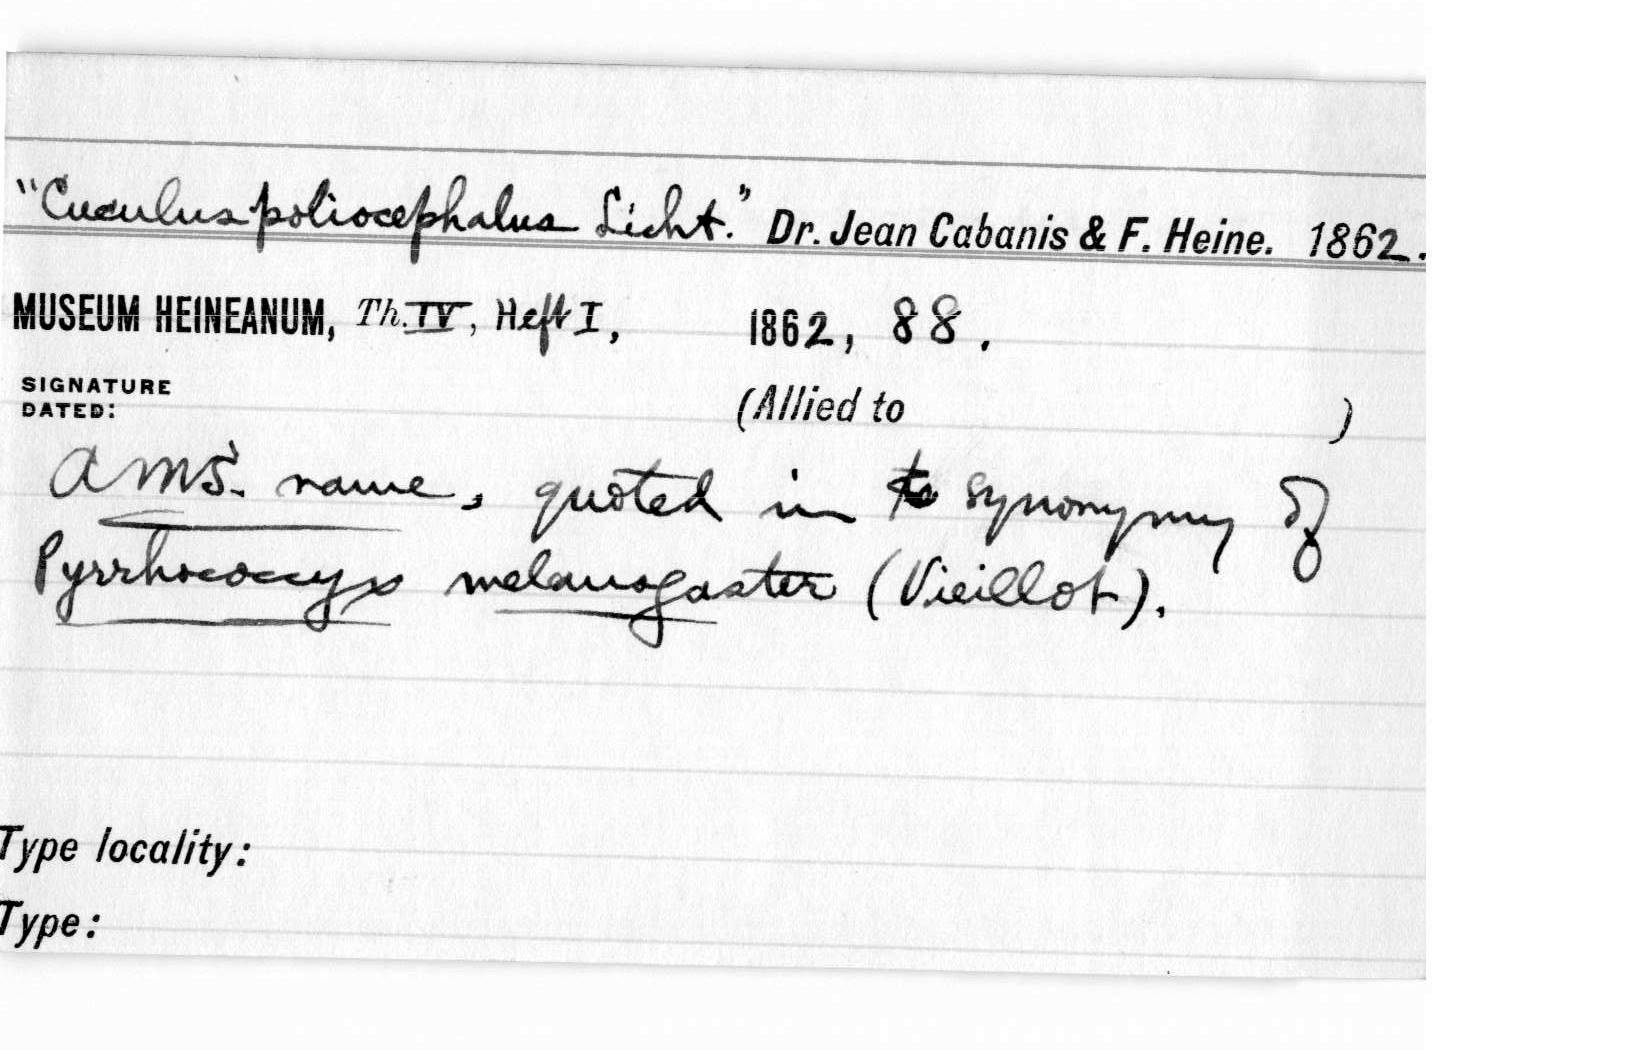 "Cuculus poliocephalus Licht." Dr. Jean Cabanis & F. Heine. 1862.
MUSEUM HEINEANUM, Th. IV, Heft I, 1862, 88.
SIGNATURE
DATED: (Allied to )
A MS. name, quoted in synonymy of
Pyrrhococcyx melanogaster (Vieillot).
Type locality:
Type: